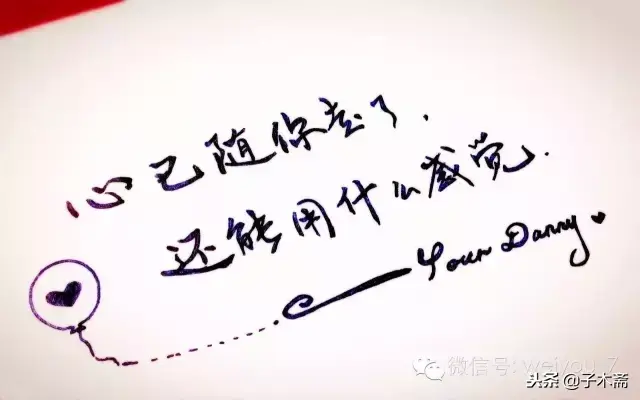 心已随你去了.
还能用什么感觉.
Your Danny
微信号: weiyou_7
头条 @子木斋